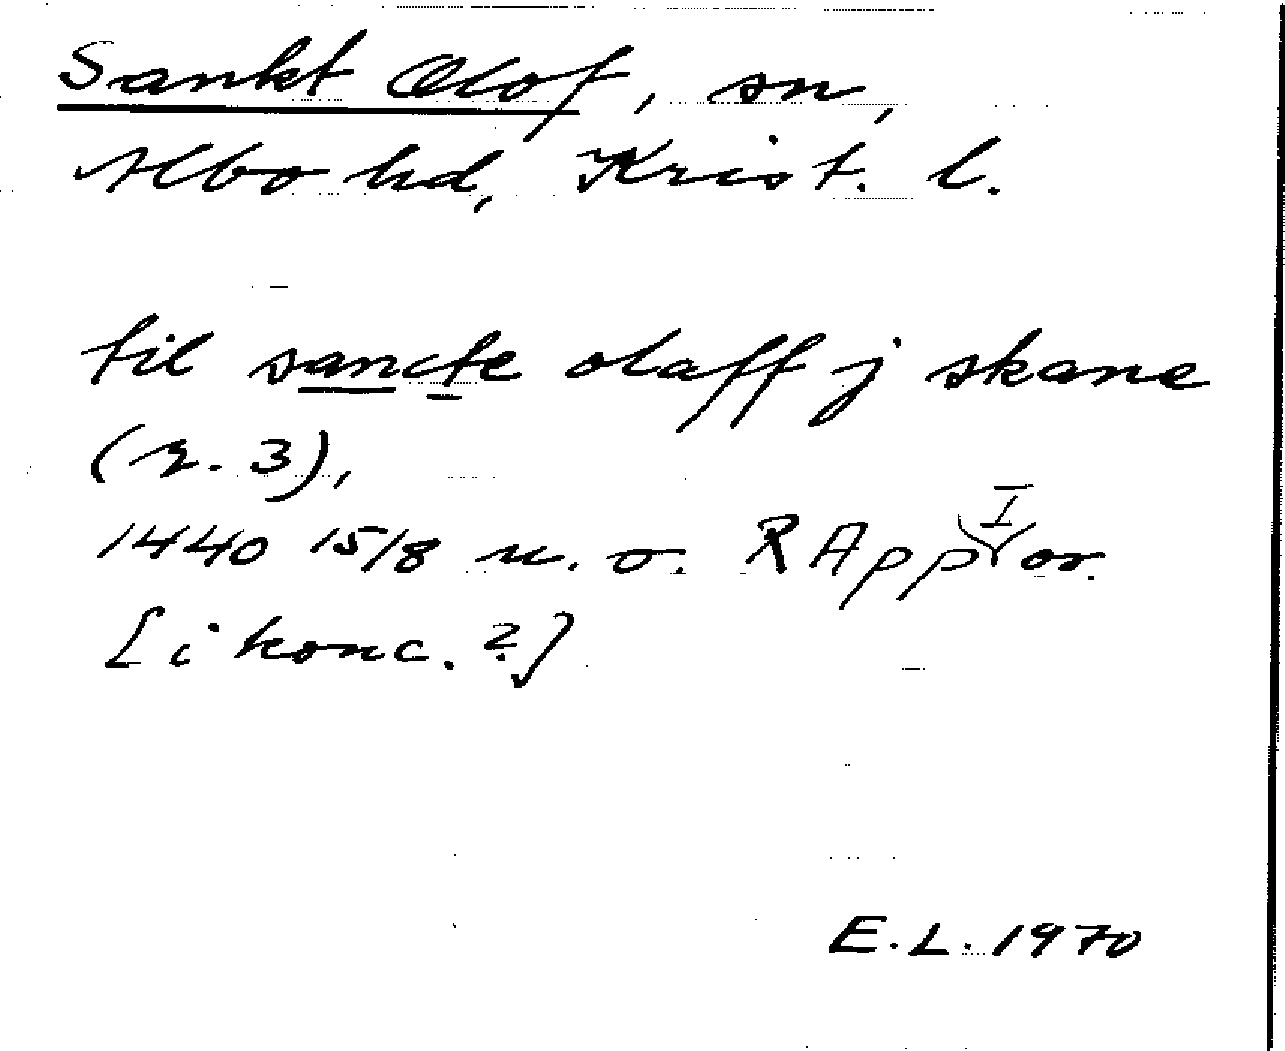 Sankt Olof, sn,
Albo hd, Krist. l.
til sancte olaff j skane
(r. 3),
1440 15/8 u. o. RApp I or.
[i konc. ?]
E.L. 1970